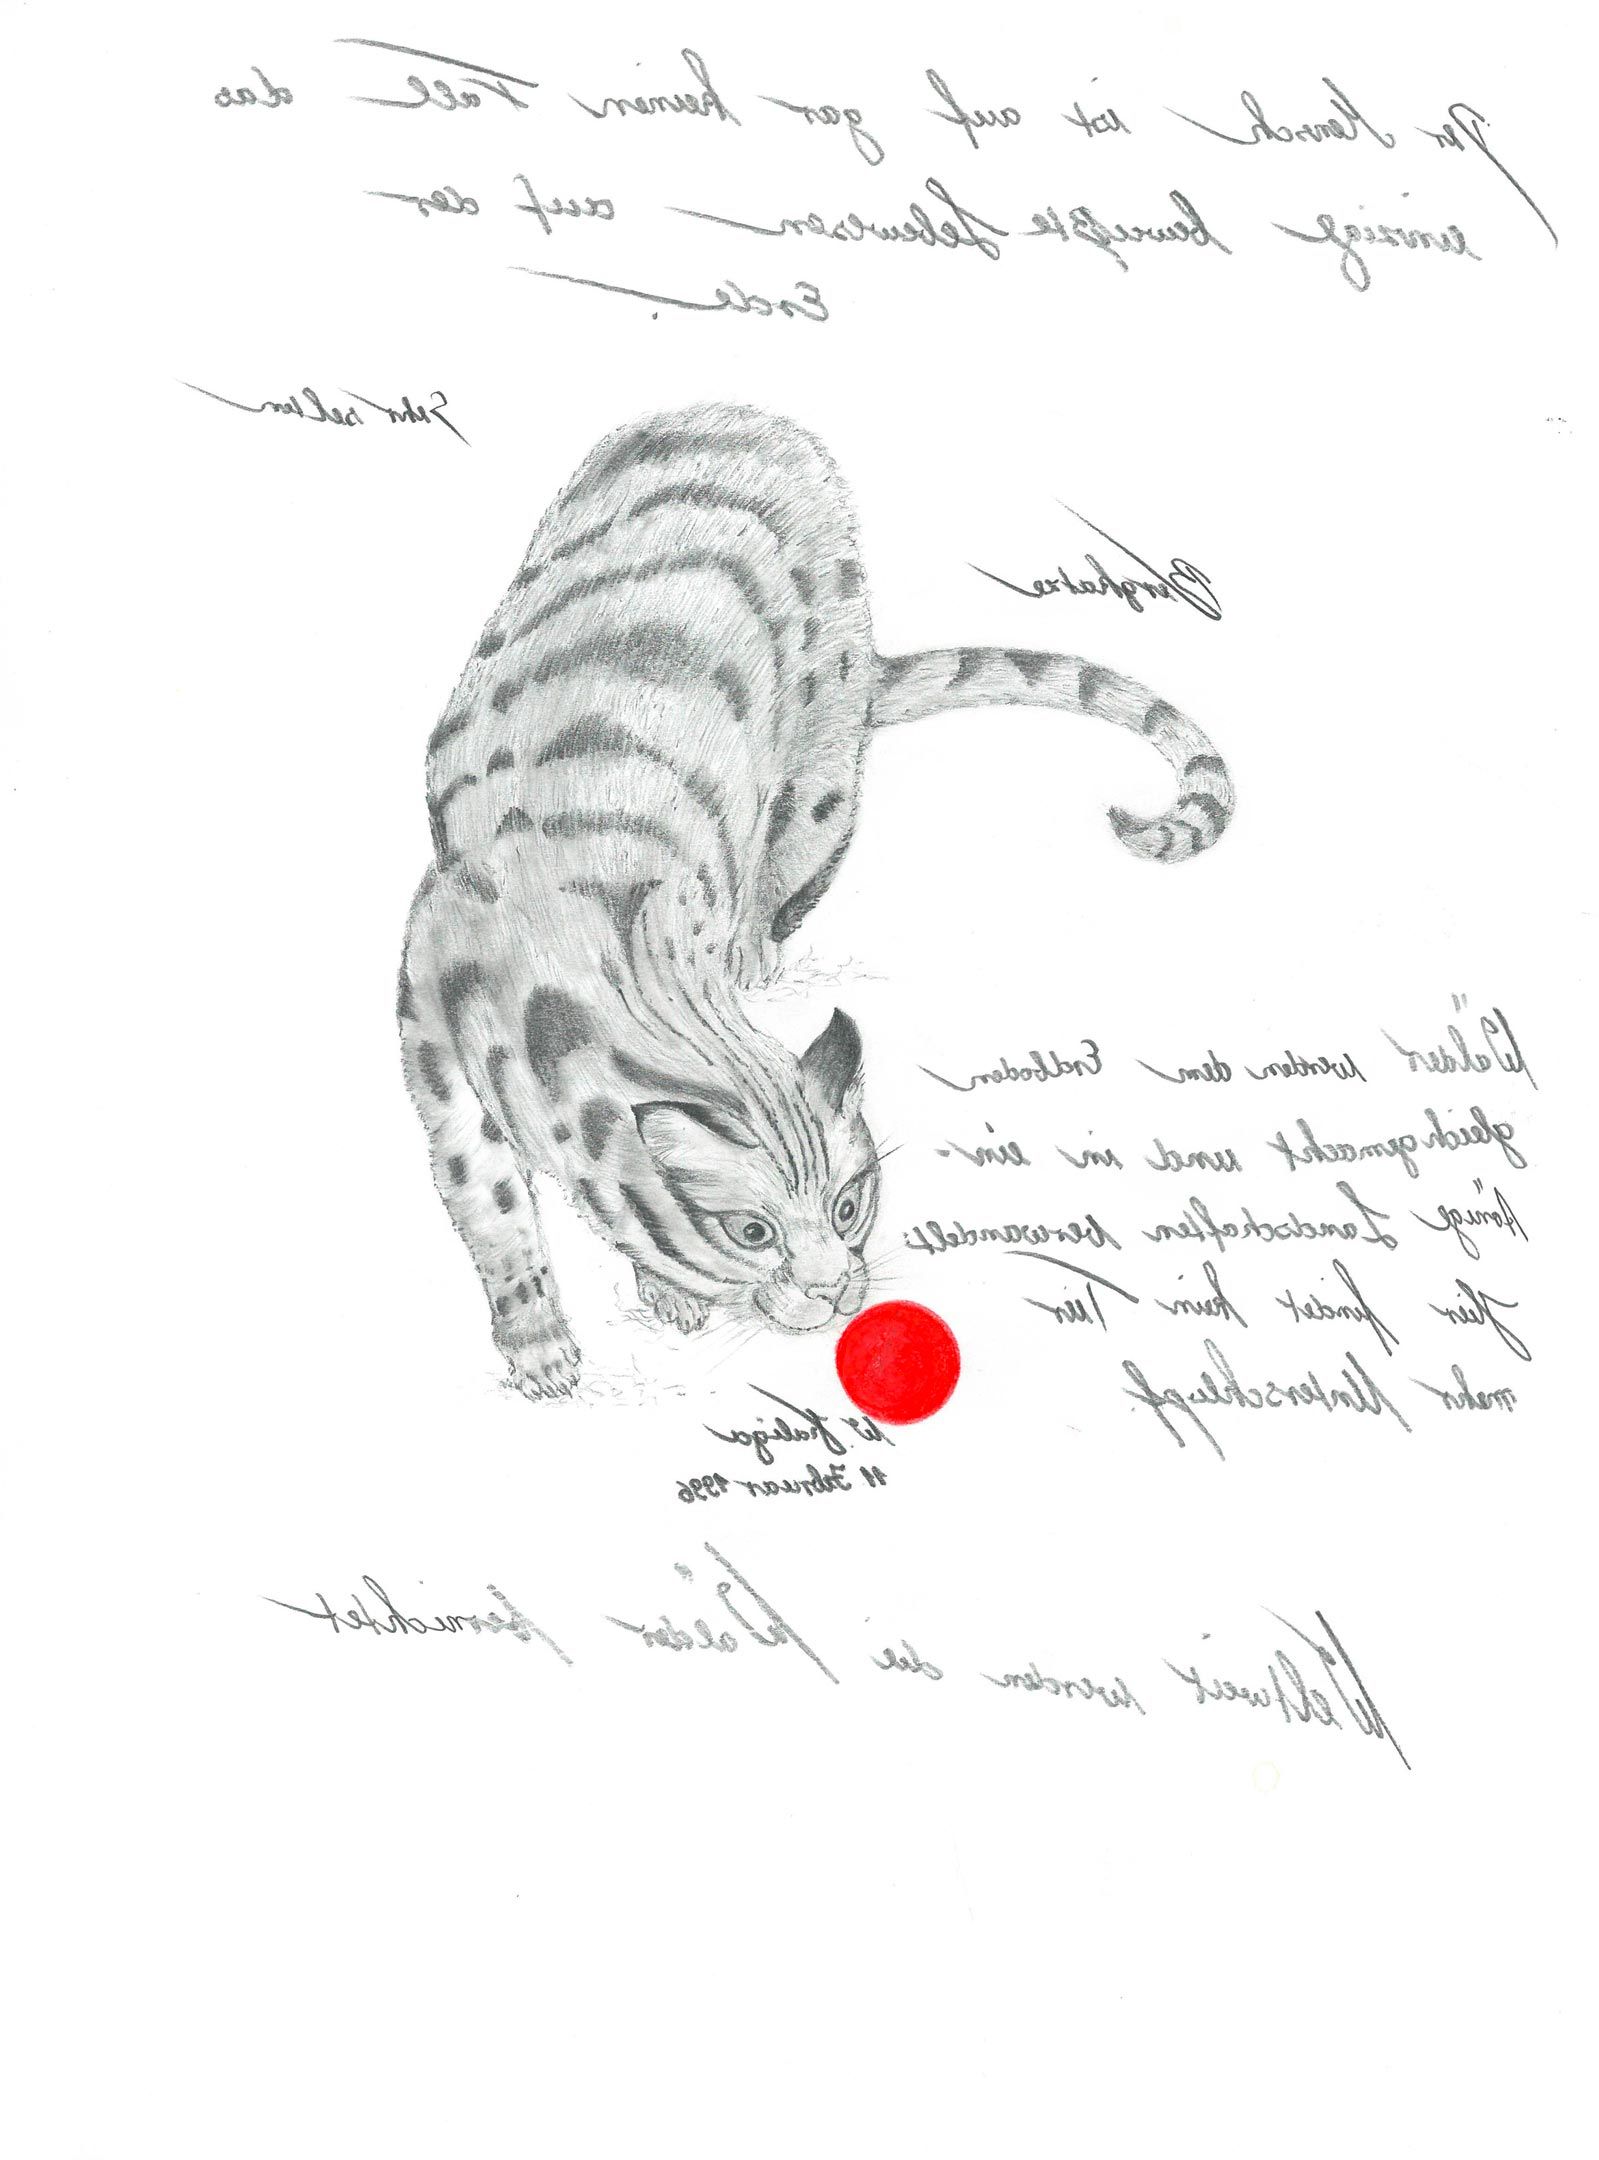 Der Mensch ist auf gar keinen Fall das
einzige bewußte Lebewesen auf der
Erde.
Sehr selten
Bergkatze
Wälder werden dem Erdboden
gleichgemacht und in ein-
tönige Landschaften verwandelt.
Hier findet kein Tier
mehr Unterschlupf.
W. Kaliga
11 Februar 1996
Weltweit werden die Wälder vernichtet